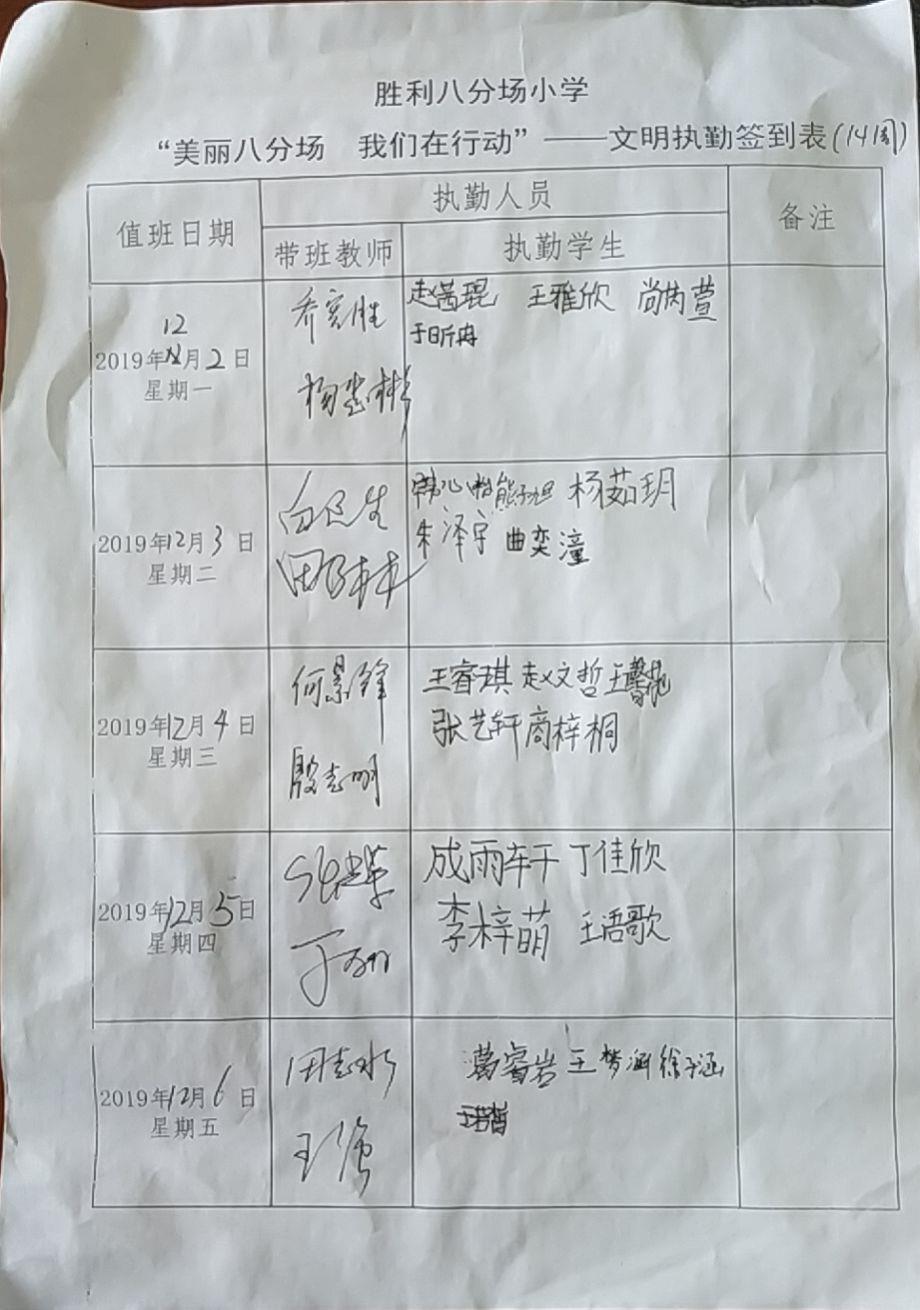 胜利八分场小学
“美丽八分场 我们在行动”——文明执勤签到表(14周)
值班日期 执勤人员 备注
带班教师 执勤学生
12
2019年 月2日
星期一
王雅欣 尚芮萱
于昕冉
2019年12月3日
星期二
田 林
杨茹玥
朱泽宇 曲奕潼
2019年12月4日
星期三
何景锋
殷志明
王睿琪 赵文哲 王馨
张艺轩 商梓桐
2019年12月5日
星期四
丁
成雨轩 丁佳欣
李梓萌 王语歌
2019年12月6日
星期五
田志水
王强
葛睿岩 王梦涵 徐子涵